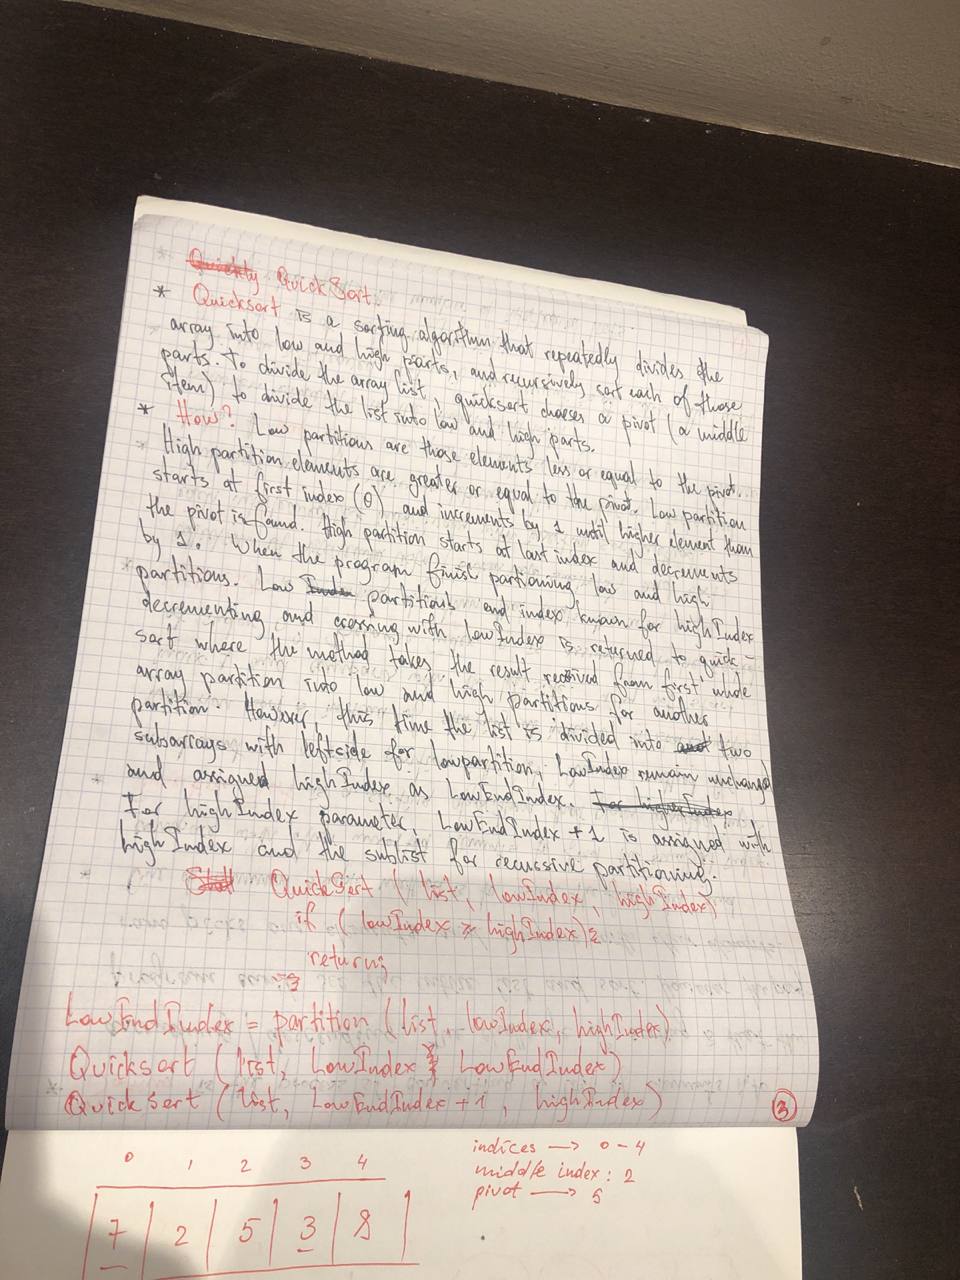 * Quickly QuickSort:
* Quicksort is a sorting algorithm that repeatedly divides the
array into low and high parts, and recursively sort each of those
parts. To divide the array list, quicksort chooses a pivot (a middle
item) to divide the list into low and high parts.
* How? Low partitions are those elements less or equal to the pivot.
High partition elements are greater or equal to the pivot. Low partition
starts at first index (0) and increments by 1 until higher element than
the pivot is found. High partition starts at last index and decrements
by 1. When the program finish partioning, low and high
partitions. Low Index partitions end index known for highIndex
decrementing and crossing with lowIndex is returned to quick-
sort where the method takes the result received from first whole
array partition into low and high partitions for another
partition. However, this time the list is divided into two
subarrays with leftside for lowpartition, LowIndex remain unchanged
and assigned highIndex as LowEndIndex. For higherIndex
For highIndex parameter, LowEndIndex + 1 is assigned with
highIndex and the sublist for recussive partitioning.
QuickSort (list, lowIndex, highIndex)
if (lowIndex ≥ highIndex){
return;
}
LowEndIndex = partition (list, lowIndex, highIndex)
Quicksort (list, LowIndex, LowEndIndex)
QuickSort (list, LowEndIndex + 1, highIndex)
3
indices → 0 - 4
middle index: 2
pivot → 5
0 1 2 3 4
7 2 5 3 8